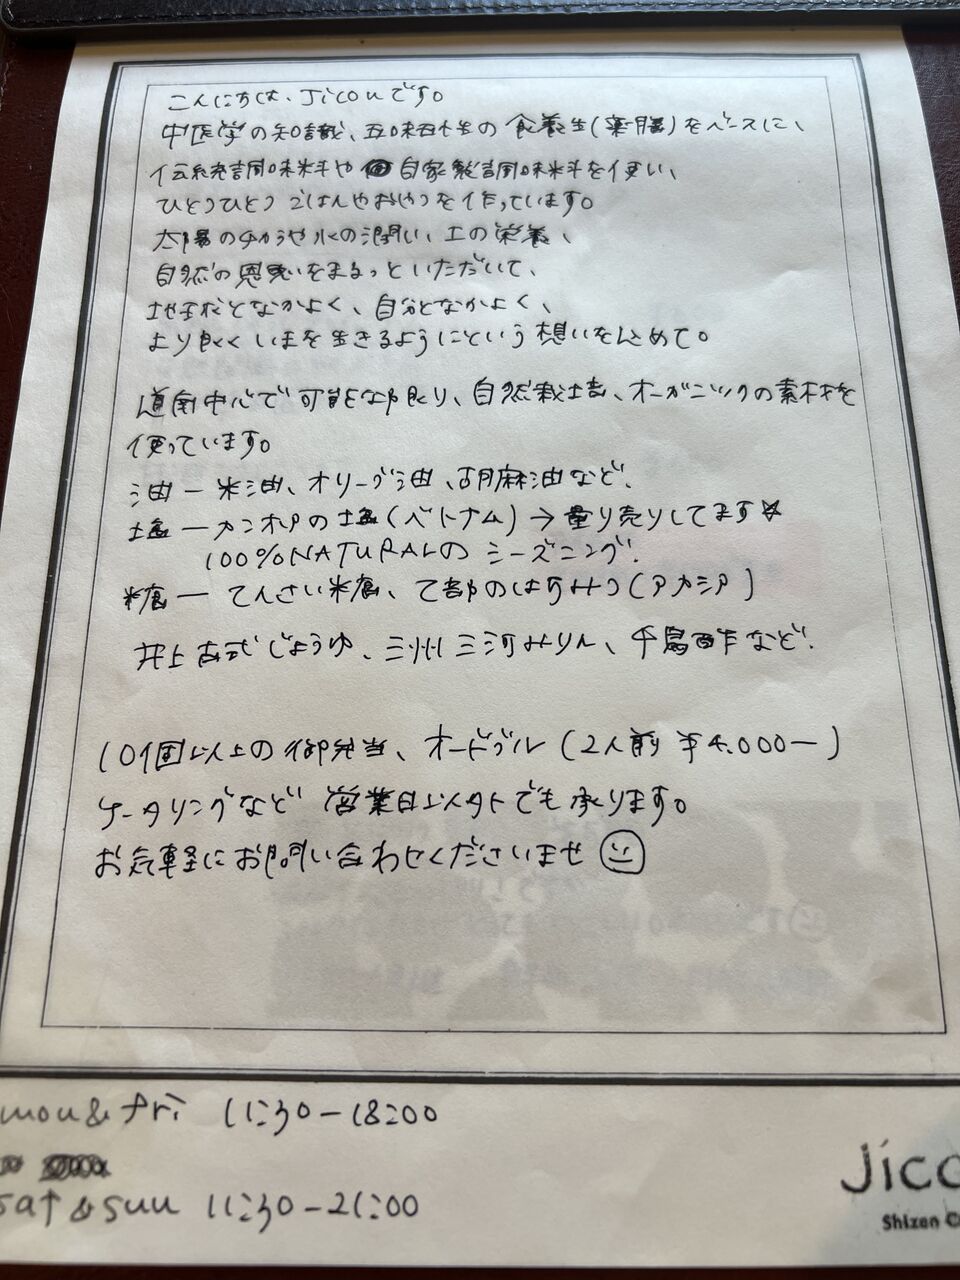 こんにちは、Jicouです。
中医学の知識、五味五性の食養生(薬膳)をベースに、
伝統調味料や自家製調味料を使い、
ひとつひとつごはんやおやつを作っています。
太陽のチカラや水の潤い、土の栄養、
自然の恩恵をまるっといただいて、
地球となかよく、自分となかよく、
より良くいまを生きるようにという想いを込めて。
道南中心で可能な限り、自然栽培、オーガニックの素材を
使っています。
油ー米油、オリーブ油、胡麻油など.
塩ーカンホアの塩(ベトナム)→量り売りしてます☆
100%NATURALのシーズニング.
糖ーてんさい糖、て部のはちみつ(アカシア)
井上古式じょうゆ、三州三河みりん、千鳥酢など.
10個以上の御弁当、オードブル(2人前¥4.000ー)
ケータリングなど営業日以外でも承ります。
お気軽にお問い合わせくださいませ
mon&fri 11:30-18:00
sat&sun 11:30-21:00
Jico
Shizen